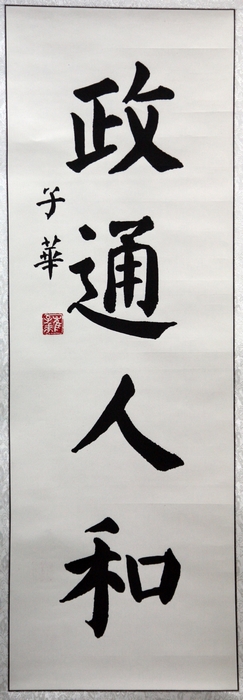 政通人和
子華